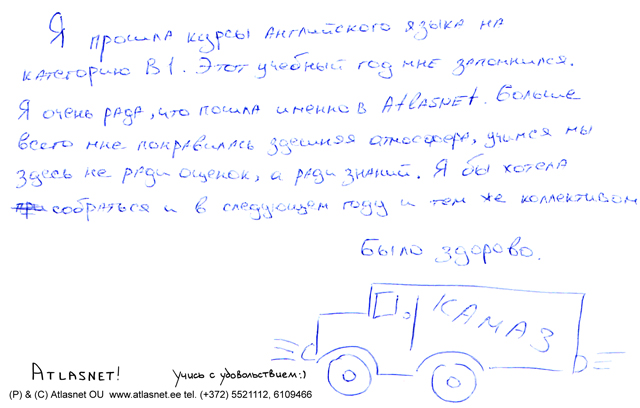 Я прошла курсы английского языка на
категорию B1. Этот учебный год мне запомнился.
Я очень рада, что пошла именно в Atlasnet. Больше
всего мне понравилась здешняя атмосфера, учимся мы
здесь не ради оценок, а ради знаний. Я бы хотела
собраться и в следующем году и тем же коллективом
Было здорово.
КАМАЗ
ATLASNET! Учись с удовольствием:)
(P) & (C) Atlasnet OU www.atlasnet.ee tel. (+372) 5521112, 6109466